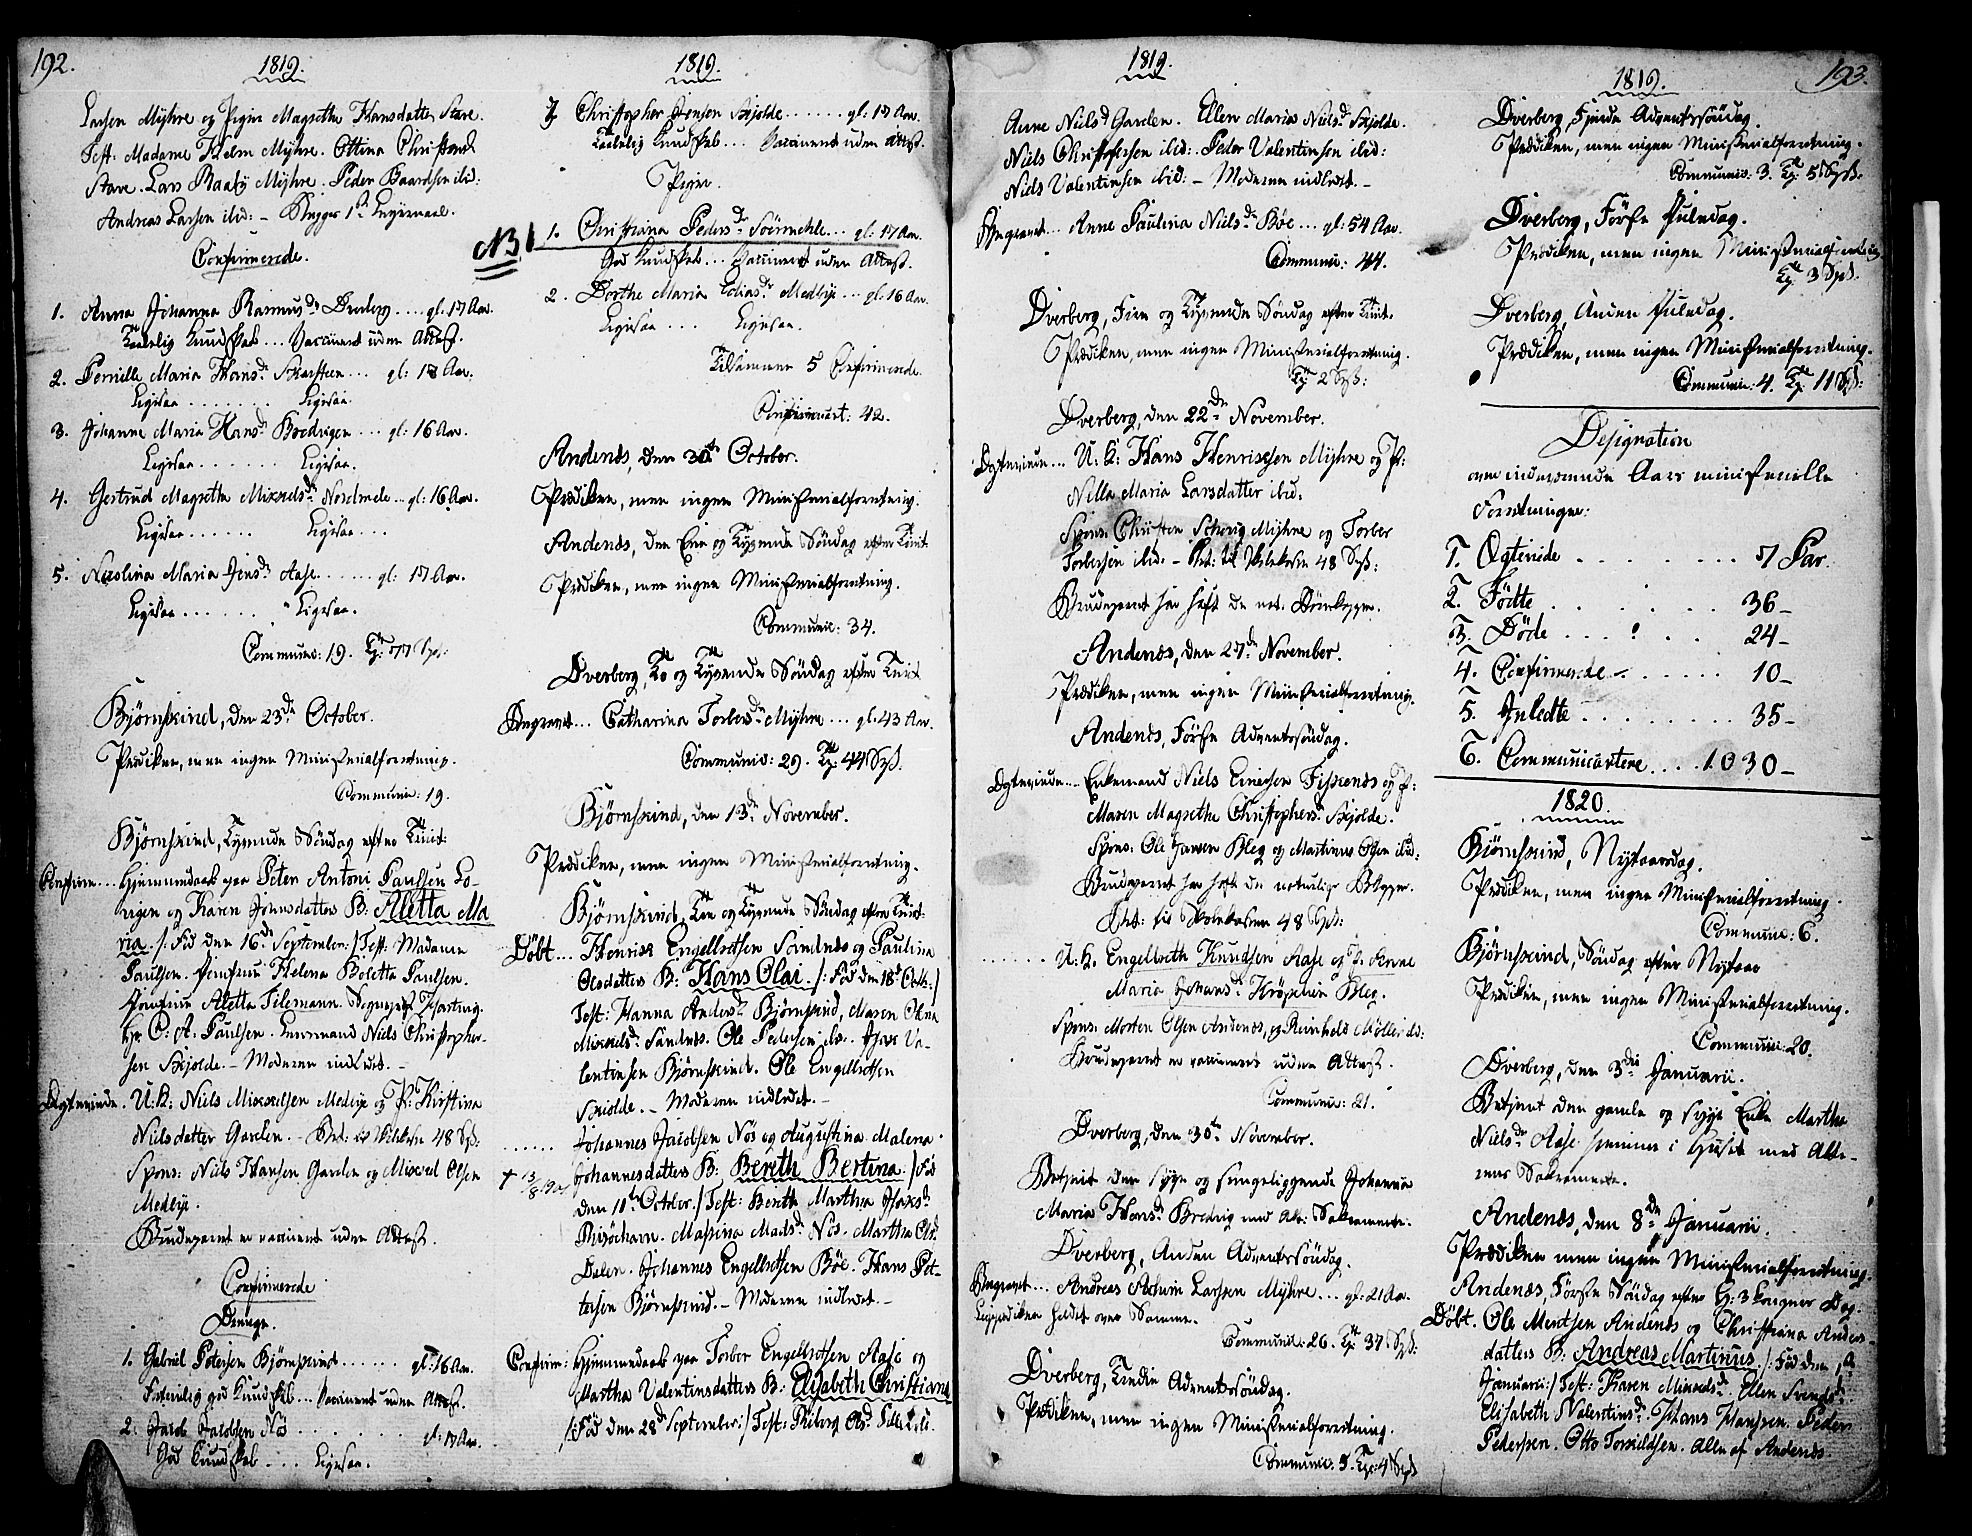 192.
1819.
Larsen Myhre og Pigen Magrethe Hansdatter Stave.
Test: Madame Helm Myhre. Ottina Christians
Stave. Lars Raaby Myhre. Peder Baardsen ibid:
Andreas Larsen ibid: – Begges 1ste Leyermaal.
Confirmerede.
1. Anna Johanna Rasmusdr Dverberg .... gl. 17 Aar.
Temmelig Kundskab ... Vaccineret uden Attest.
2. Pernille Maria Hansdr Skarsteen ... gl: 18 Aar.
Ligesaa ........ Ligesaa.
3. Johanna Maria Hansdr Bredvigen ... gl: 16 Aar.
Ligesaa ...... Ligesaa.
4. Gertrud Magretha Mikkelsdr Nordmele .. gl: 16 Aar.
Ligesaa ...... Ligesaa ...
5. Nicolina Maria Jensdr Aase ...... gl: 17 Aar.
Ligesaa ...... Ligesaa.
Communic: 19.
Bjørnskind, den 23de October.
Prædiken, men ingen Ministerialforretning.
Communic: 19.
Bjørnskind, Tyvende Søndag efter Trinit:
Confirm ... Hjemmedaab paa Peter Antoni Paulsen Lo-
vigen og Karen Johnsdatters B: Aletta Ma
ria /: Fød den 16de September :/ Test: Madame
Paulsen. Jomfrue Helena Boletta Paulsen.
Jomfrue Aletta Tilemann. Sogneprest Hartvig.
Hr C: A: Paulsen. Enromand Niels Christopher-
sen Skjolde. – Moderen indledet. –
Ægtevinde. U: K: Niels Mikkelsen Medbye og P: Kirstina
Nielsdatter Garden. – 48 Sk:
Spons: Niels Hansen Garden og Mikkel Olsen
Medbye.
Brudeparret er vaccineret uden Attest.
Confirmerede
Drenge.
1. Gabriel Petersen Bjørnskind ...... gl: 16 Aar.
Temmelig god Kundskab ... Vaccineret uden Attest.
2. Jacob Jacobsen Nøs ....... gl: 17 Aar.
God Kundskab ... Ligesaa.
1819.
3. Christopher Jensen Skjolde ...... gl: 17 Aar.
Temmelig Kundskab ... Vaccineret uden Attest.
Piger.
NB 1. Christiana Pedersdr Sørmehle ... gl: 17 Aar.
God Kundskab ... Vaccineret uden Attest.
2. Dorthe Maria Eliasdr Medbye ... gl. 16 Aar.
Ligesaa ... Ligesaa.
Tilsammen 5 Confirmerede.
Communicant: 42.
Andenæs, den 30te October.
Prædiken, men ingen Ministerialforretning.
Andenæs, den Een og Tyvende Søndag efter Trinit.
Prædiken, men ingen Ministerialforretning.
Communic: 34.
Dverberg, To og Tyvende Søndag efter Trinit
Begravet ... Catharina Torbersdr Myhre ... gl: 43 Aar.
Communic: 29. 44 Sk.
Bjørnskind, den 13de November.
Prædiken, men ingen Ministerialforretning.
Bjørnskind, Tre og Tyvende Søndag efter Trinit:
Døbt ... Henrik Engelbretsen Sandnæs og Paulina
Olsdatters B: Hans Olai. /: Fød den 18de Octb: /
Test: Hanna Andersdr Bjørnskind, Maren Olsna
Mikkelsdr Sandnæs. Ole Pedersen ib. Isac Va-
lentinsen Bjørnskind. Ole Engelbretsen
Skjolde. – Moderen indledet. –
...... Johannes Jacobsen Nøs og Augustina Malena
Johannesdatters B: Bereth Bertina. / Fød
† 13/8 1901
den 11te October. / Test: Bereth Martha Isaksdr
Risøehavn. Massina Madsdr Nøs. Martha Olsdr
Dalen. Johannes Engelbretsen Bøe. Hans Pet-
tersen Bjørnskind. – Moderen indledet. –
Confirm: Hjemmedaab paa Torber Engelbretsen Aase og
Martha Valentinsdatters B: Elisabeth Christiana
/: Fød den 28de September :/ Test:
193.
1819.
Anne Nielsdr Garden. Ellen Maria Nielsdr Skjolde.
Niels Christophersen ibid: Peder Valentinsen ibid:
Niels Valentinsen ibid: – Moderen indledet. –
Begravet ... Anne Paulina Nielsdr Bøe ... gl: 54 Aar.
Communic: 44.
Dverberg, Fire og Tyvende Søndag efter Trinit.
Prædiken, men ingen Ministerialforretning.
2 Sk:
Dverberg, den 22de November.
Ægtevinde ... U: K: Hans Henriksen Myhre og P:
Nilla Maria Larsdatter ibid.
Spons: Christen Schevig Myhre og Torber
Torbersen ibid: – 48 Sk:
Brudeparret har haft de nat. Børnekopper.
Andenæs, den 27de November.
Prædiken, men ingen Ministerialforretning.
Andenæs, Første Adventssøndag.
Ægtevinde ... Enkemand Niels Ericsen Fiskenæs og P:
Maren Magrethe Christophersdr Skjolde.
Spons: Ole Jansen Bleg og Martinus Olsen ibid:
Brudeparret har haft de naturlige Kopper.
Bet: til Skolekassen 48 Sk:
...... U: K. Engelbreth Knudsen Aase og P: Anne
Maria Johansdr Bleg.
Spons: Morten Olsen Andenæs, og Reinholt Møller ib:
Brudeparret er vaccineret uden Attest.
Communic: 21.
Dverberg, den 30te November.
Betjent den syge og sengeliggende Johanna
Maria Hansdr Bredvig med Alt: Sakramente.
Dverberg, Anden Adventssøndag.
Begravet ... Andreas Larssen Myhre ... gl: 21 Aar.
Liigprædiken holdet over Samme.
Communic: 26. 37 Sk:
Dverberg, Tredie Adventssøndag.
Prædiken, men ingen Ministerialforretning.
Communic. 5. 4 Sk
1819.
Dverberg, Fjerde Adventssøndag.
Prædiken, men ingen Ministerialforretning.
Communic: 3. 5 Sk.
Dverberg, Første Juledag.
Prædiken, men ingen Ministerialforretning
3 Sk.
Dverberg, Anden Juledag.
Prædiken, men ingen Ministerialforretning.
Communic: 4. 11 Sk:
Designation
over indeværende Aars ministerielle
Forretninger:
1. Ægteviede ........ 7 Par.
2. Fødte ....... 36 –
3. Døde ...... 24 –
4. Confirmerede ...... 10 –
5. Inledte ........ 35 –
6. Communicantere ... 1030 –
1820.
Bjørnskind, Nytaarsdag.
Prædiken, men ingen Ministerialforretning.
Communic: 6.
Bjørnskind, Søndag efter Nytaar
Prædiken, men ingen Ministerialforretning.
Communic: 20.
Dverberg, den 3die Januarii.
Betjent den gamle og syge Enke Marthe
Nielsdr Aase hjemme i Huset med Alte-
rens Sakramente.
Andenæs, den 8de Januarii.
Prædiken men ingen Ministerialforretning.
Andenæs, Første Søndag efter H: 3 Kongers Dag.
Døbt. Ole Mentsen Andenæs og Christiana Anders-
datters B: Andreas Martinus. /: Fød den
Januarii :/ Test: Karen Mikkelsdr. Ellen Svendsdr.
Elisabeth Valentinsdr. Hans Hansen. Peder
Pederssen. Otto Torkildsen. Alle af Andenæs